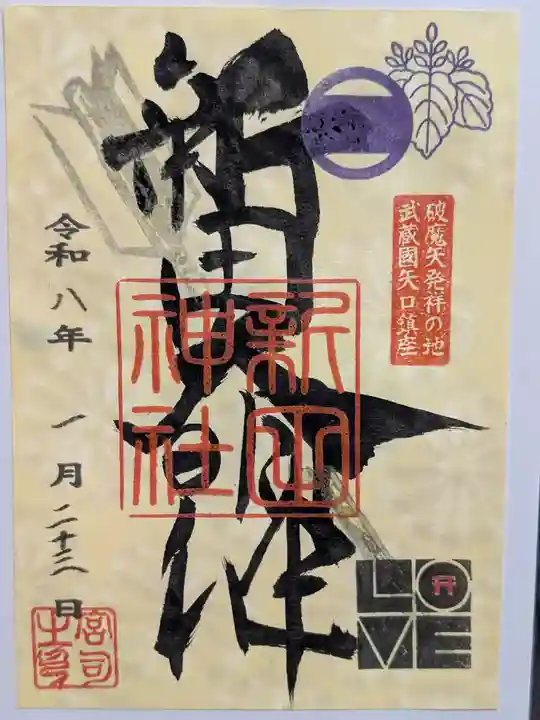 破魔矢発祥の地
武蔵國矢口鎮座
新田
神社
令和八年 一月二十三日
宮司
之印
LO
VE